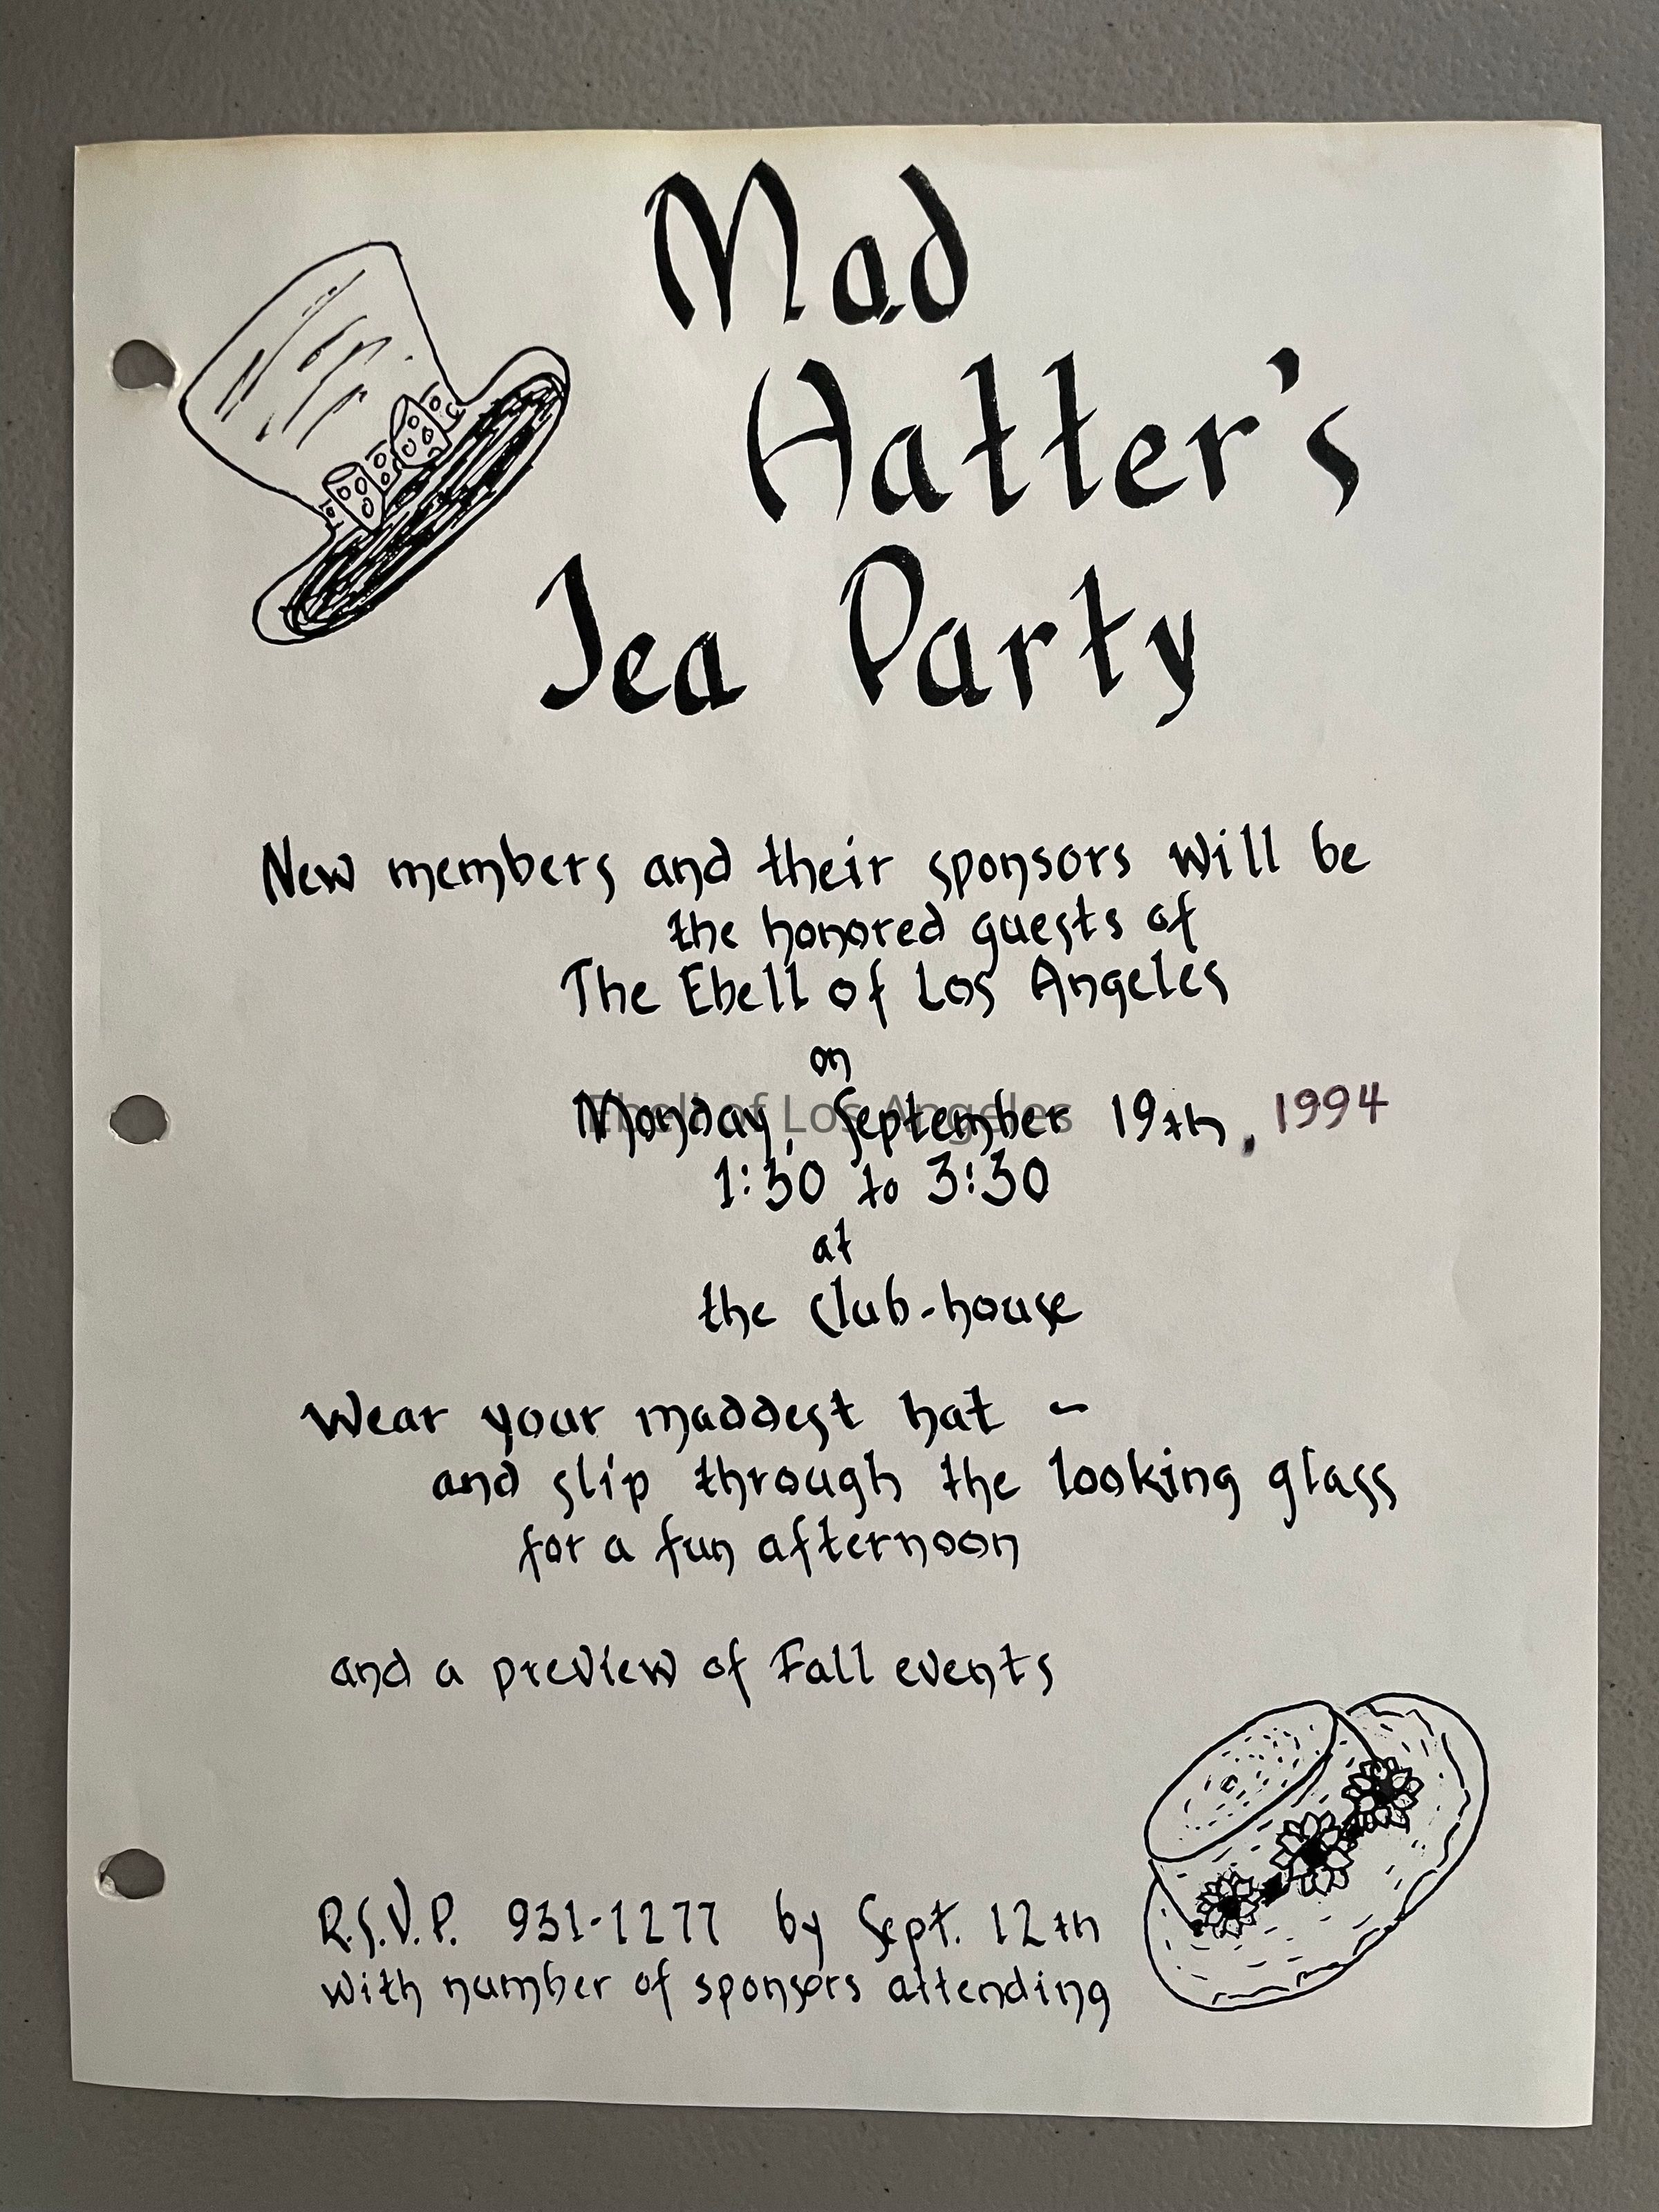 Mad
Hatter's
Tea Party
New members and their sponsors will be
the honored guests of
The Ebell of Los Angeles
on
Monday, September 19th, 1994
Ebell of Los Angeles
1:30 to 3:30
at
the club-house
Wear your maddest hat -
and slip through the looking glass
for a fun afternoon
and a preview of Fall events
R.S.V.P. 931-1277 by Sept. 12th
with number of sponsors attending